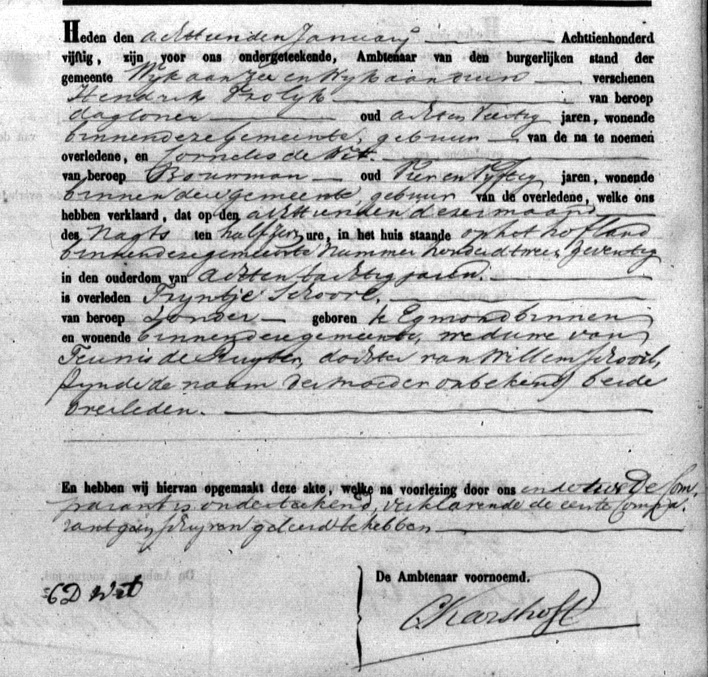 Heden den achttienden Januarij Achttienhonderd
vijftig, zijn voor ons ondergeteekende, Ambtenaar van den burgerlijken stand der
gemeente Wijk aan Zee en Wijk aan duin verschenen
Hendrik van beroep
daglooner oud acht en Veertig jaren, wonende
binnen deze gemeente, gebuur van de na te noemen
overledene, en Cornelis de Wit
van beroep Bouwman oud Vier en Vijftig jaren, wonende
binnen deze gemeente, gebuur van de overledene, welke ons
hebben verklaard, dat op den achttienden dezer maand
des Nagts ten half ure, in het huis staande op het hofland
binnen deze gemeente Nummer honderd twee zeventig
in den ouderdom van acht en tachtig jaren.
is overleden Trijntje Schoorl,
van beroep Zonder geboren te Egmondbinnen
en wonende binnen deze gemeente, weduwe van
Teunis de Ruyter, dochter van Willem Schoorl,
zynde de naam der moeder onbekend beide
overleden.
En hebben wij hiervan opgemaakt deze akte, welke na voorlezing door ons en de tweede Com-
parant is onderteekend, verklarende de eerste Compa-
rant geen schryven geleerd te hebben
De Ambtenaar voornoemd.
C D Wit